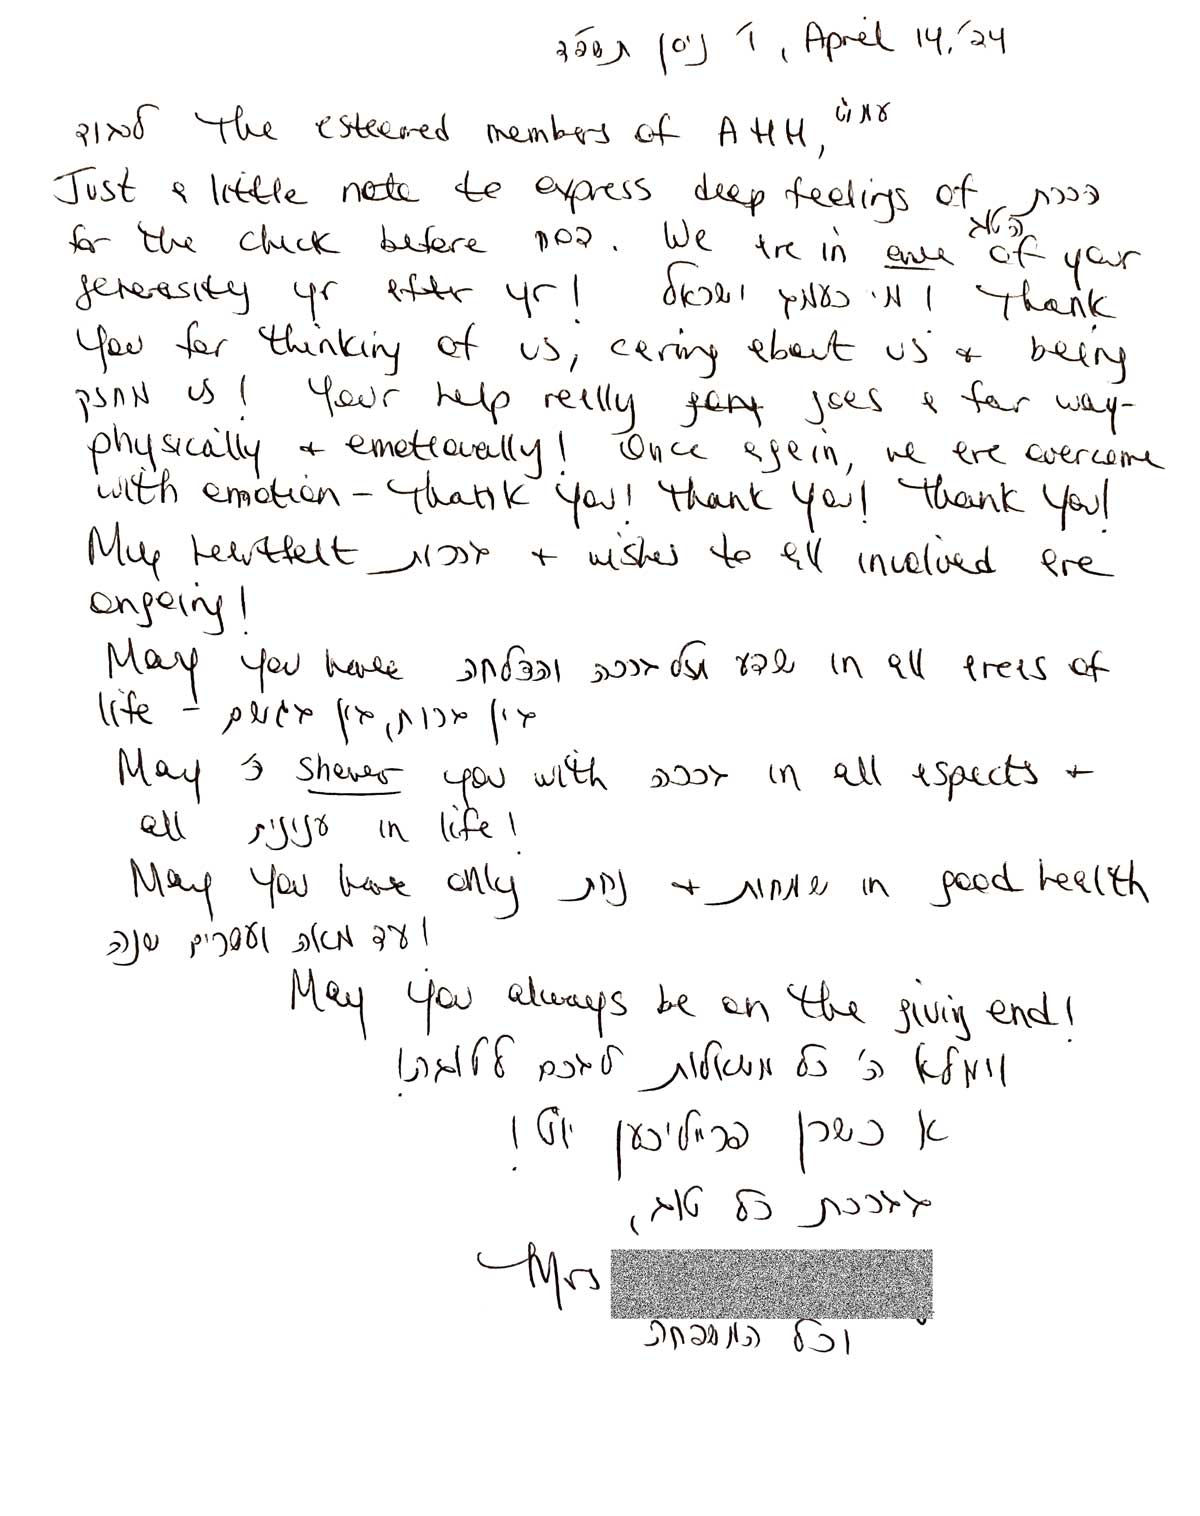 ו' ניסן תשפ"ד, April 14, '24
לכבוד The esteemed members of AHH, עמו"ש
Just a little note to express deep feelings of הכרת הטוב
for the check before פסח. We are in awe of your
generosity yr after yr! מי כעמך ישראל! Thank
you for thinking of us, caring about us + being
מחזק us! Your help really goes a far way-
physically + emotionally! Once again, we are overcome
with emotion - Thank You! Thank You! Thank You!
My heartfelt ברכות + wishes to all involved are
ongoing!
May you have שפע ברכה והצלחה in all areas of
life - אין ברוח, אין בגשם
May ה' shower you with ברכה in all aspects +
all ענינים in life!
May you have only נחת + שמחות in good health
עד מאה ועשרים שנה!
May you always be on the giving end!
וימלא ה' כל משאלות לבכם לטובה!
א כשרן פריילכען יו"ט!
בברכת כל טוב,
Mrs
וכל המשפחה